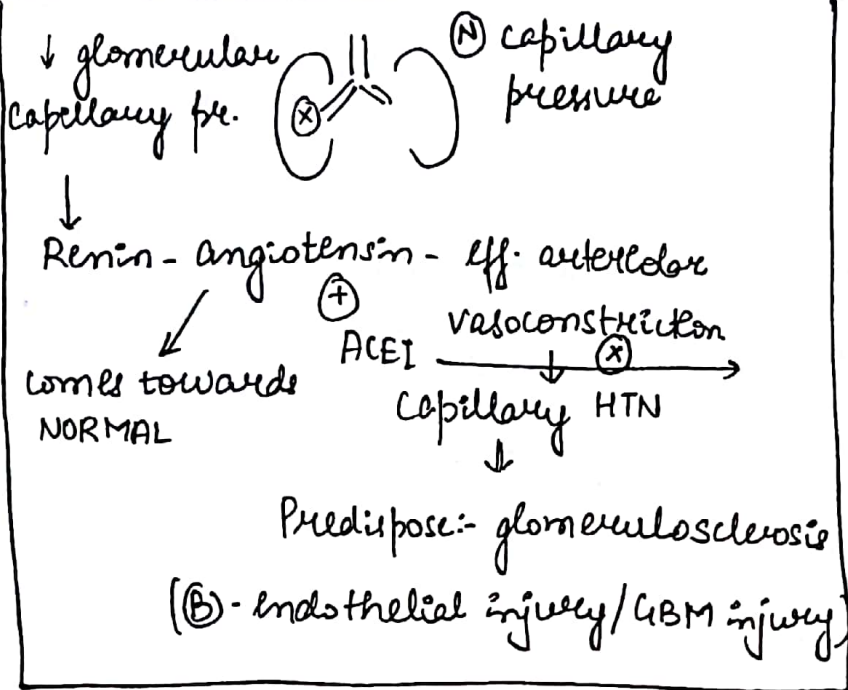 ↓ glomerular
capillary pr.
Ⓝ capillary
pressure
ⓧ
↓
Renin - angiotensin - eff. arteriolar
vasoconstriction
⊕
ACEI
ⓧ
comes towards
NORMAL
↓
Capillary HTN
↓
Predispose:- glomerulosclerosis
(Ⓑ - endothelial injury/GBM injury)